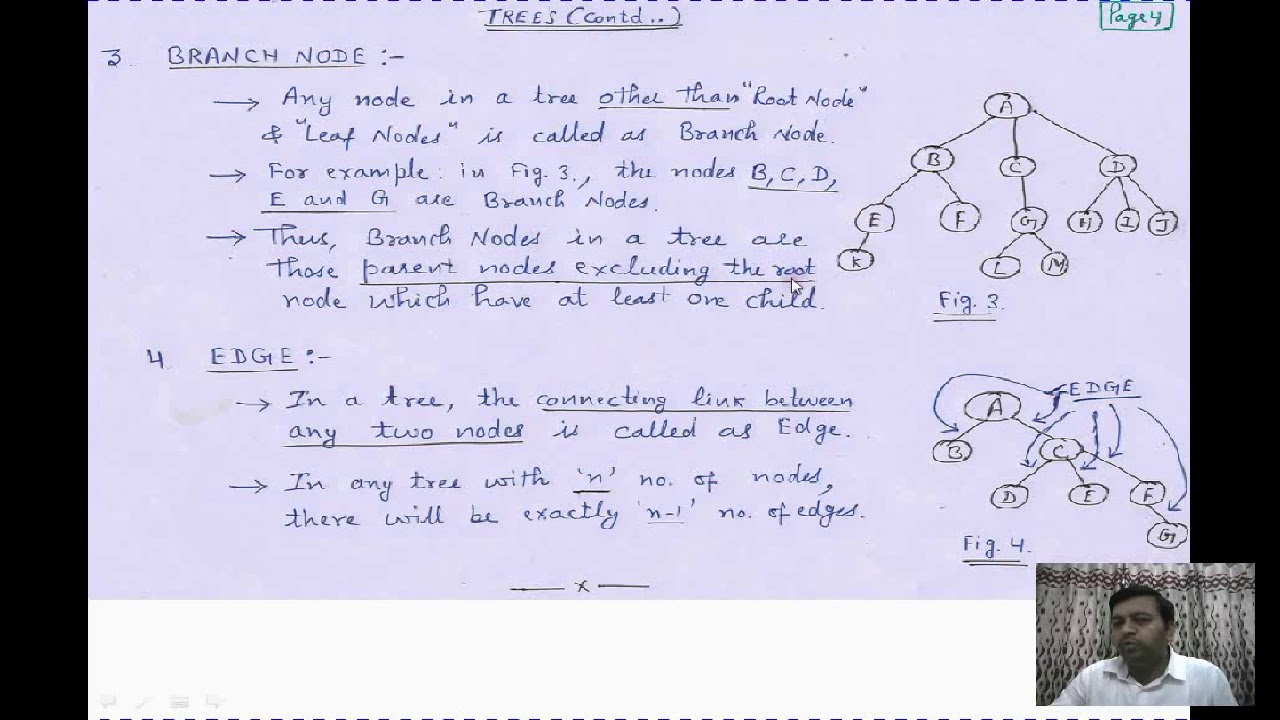 TREES (Contd..)
Page 4
3 BRANCH NODE :-
→ Any node in a tree other than "Root Node"
& "Leaf Nodes" is called as Branch Node.
→ For example: in Fig. 3., the nodes B, C, D,
E and G are Branch Nodes.
→ Thus, Branch Nodes in a tree are
those parent nodes excluding the root
node which have at least one child.
A
B C D
E F G H I J
K L M
Fig. 3.
4. EDGE :-
→ In a tree, the connecting link between
any two nodes is called as Edge.
→ In any tree with 'n' no. of nodes,
there will be exactly 'n-1' no. of edges.
EDGE
A
B C
D E F
G
Fig. 4.
x